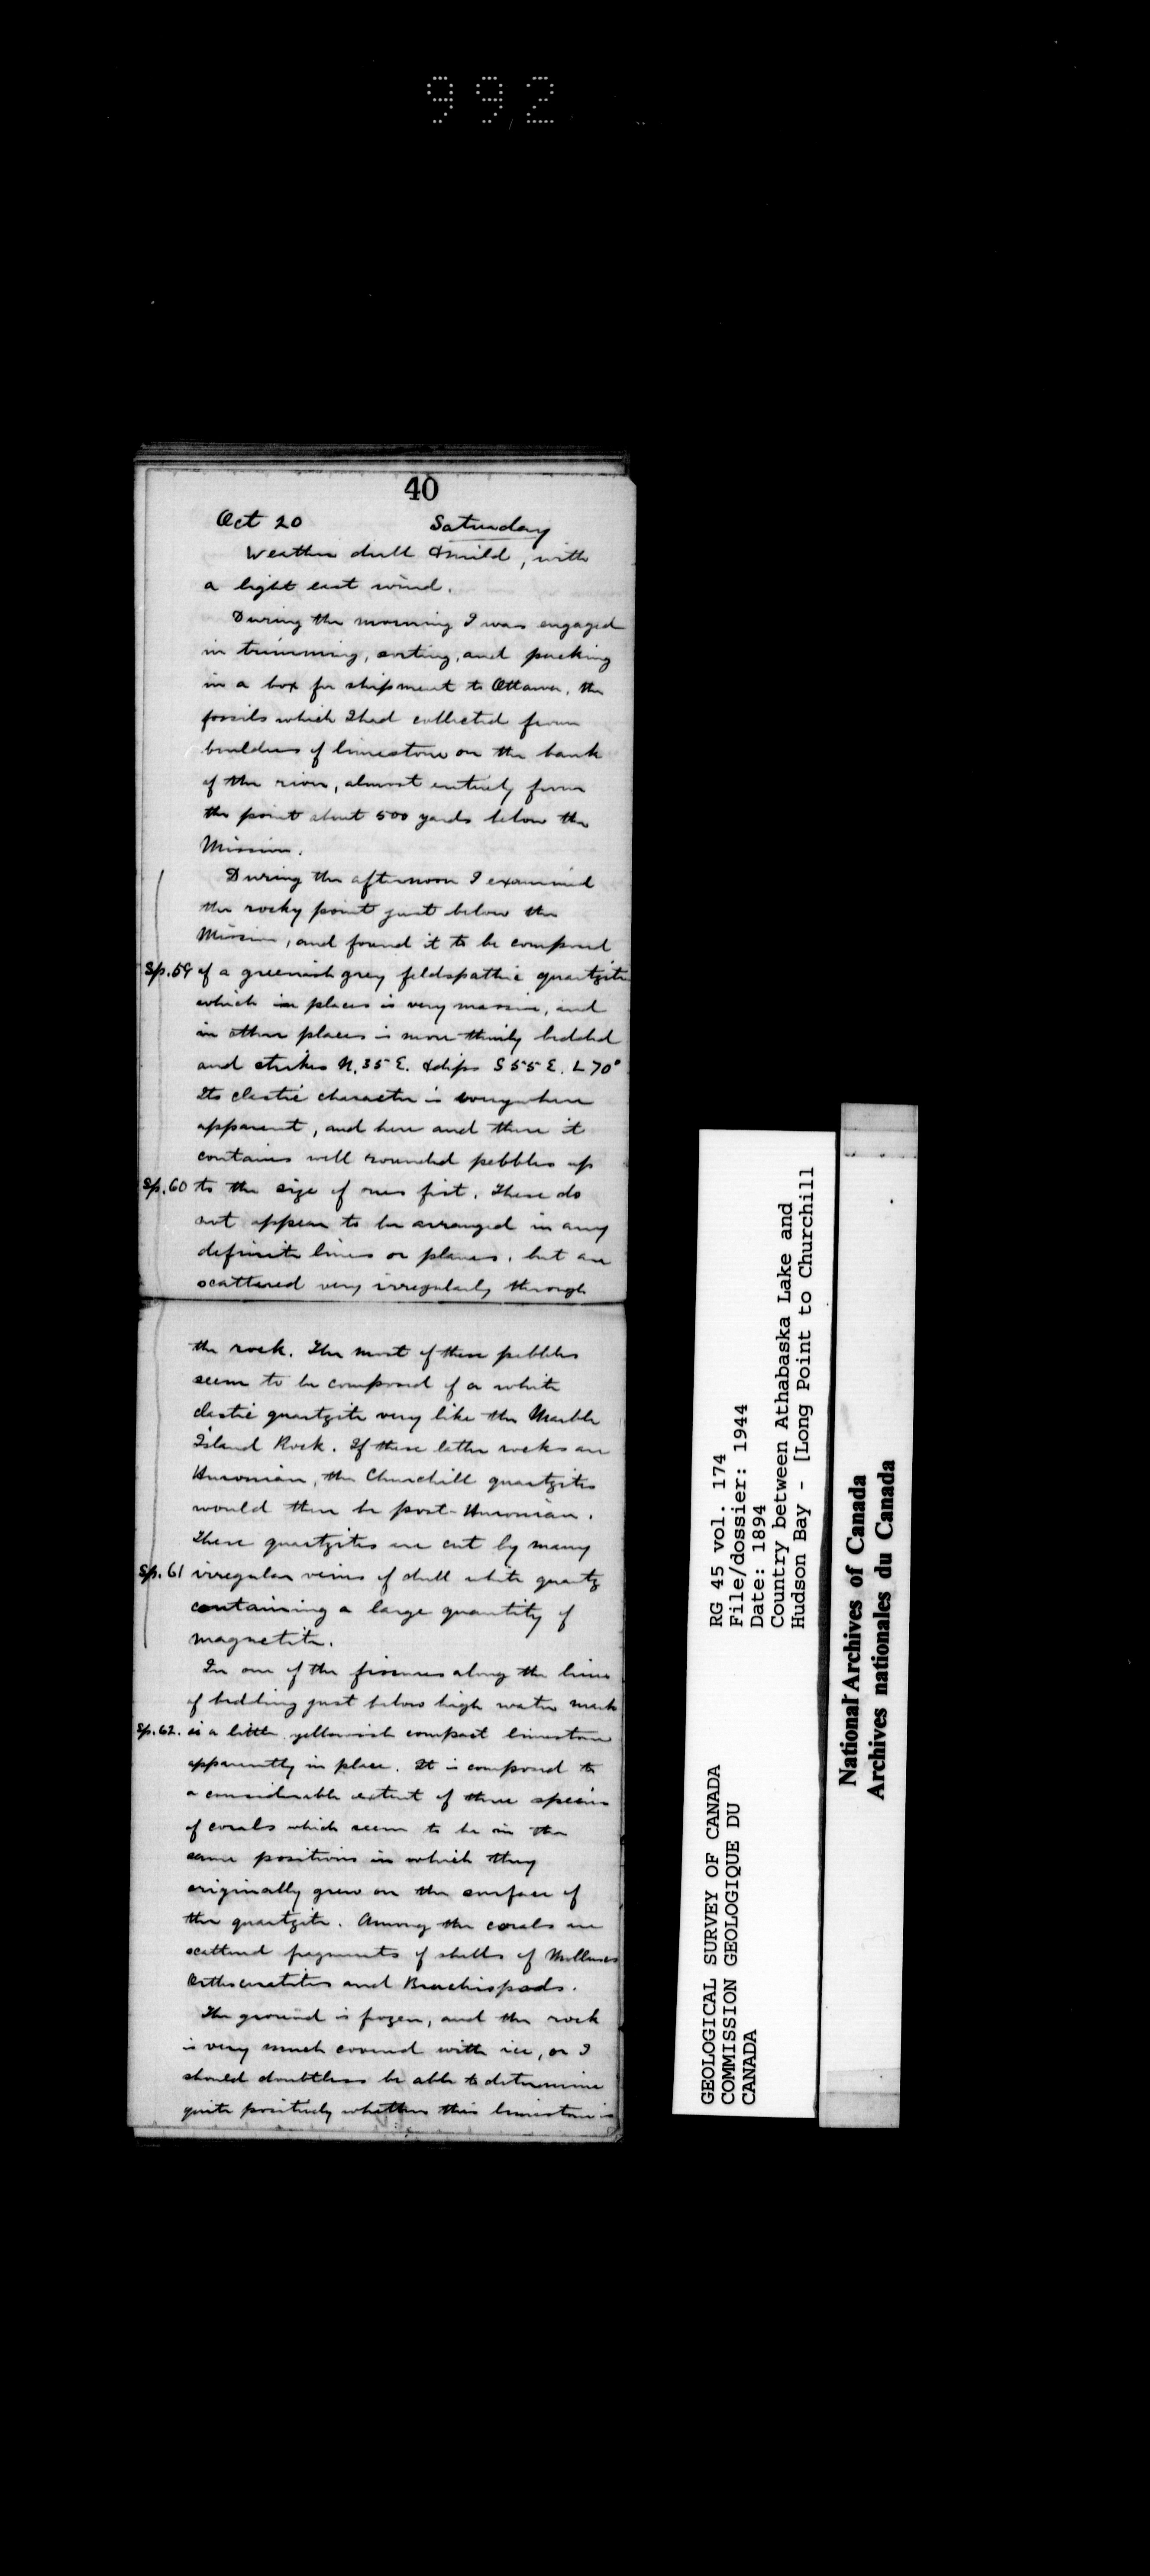 992
40
Oct 20 Saturday
Weather dull & mild, with
a light east wind.
During the morning I was engaged
in trimming, sorting, and packing
in a box for shipment to Ottawa, the
fossils which I had collected from
boulders of limestone on the bank
of the river, almost entirely from
the point about 500 yards below the
Mission.
During the afternoon I examined
the rocky point just below the
Mission, and found it to be composed
Sp. 59 of a greenish grey feldspathic quartzite
which in places is very massive, and
in other places is more thinly bedded
and strikes N. 35 E. & dips S 55 E. L 70°
Its clastic character is everywhere
apparent, and here and there it
contains well rounded pebbles up
Sp. 60 to the size of ones fist. These do
not appear to be arranged in any
definite lines or planes, but are
scattered very irregularly through
the rock. The most of these pebbles
seem to be composed of a white
clastic quartzite very like the Marble
Island Rock. If these latter rocks are
Huronian, the Churchill quartzites
would then be post-Huronian.
These quartzites are cut by many
Sp. 61 irregular veins of dull white quartz
containing a large quantity of
magnetite.
In one of the fissures along the lines
of bedding just below high water mark
Sp. 62. is a little yellowish compact limestone
apparently in place. It is composed to
a considerable extent of three species
of corals which seem to be in the
same positions in which they
originally grew on the surface of
the quartzite. Among the corals are
scattered fragments of shells of Molluscs
Orthoceratites and Brachiopods.
The ground is frozen, and the rock
is very much covered with ice, or I
should doubtless be able to determine
quite positively whether this limestone is
RG 45 vol. 174
File/dossier: 1944
Date: 1894
Country between Athabaska Lake and
Hudson Bay - [Long Point to Churchill
GEOLOGICAL SURVEY OF CANADA
COMMISSION GEOLOGIQUE DU
CANADA
National Archives of Canada
Archives nationales du Canada